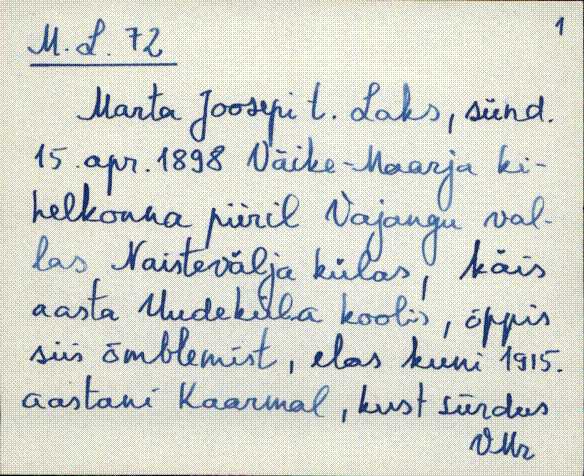 1
M. L. 72
Marta Joosepi t. Laks, sünd.
15. apr. 1898 Väike-Maarja ki-
helkonna piiril Vajangu val-
las Naistevälja külas, käis
aasta Uudeküla koolis, õppis
siis õmblemist, elas kuni 1915.
aastani Kaarmal, kust siirdus
VMr